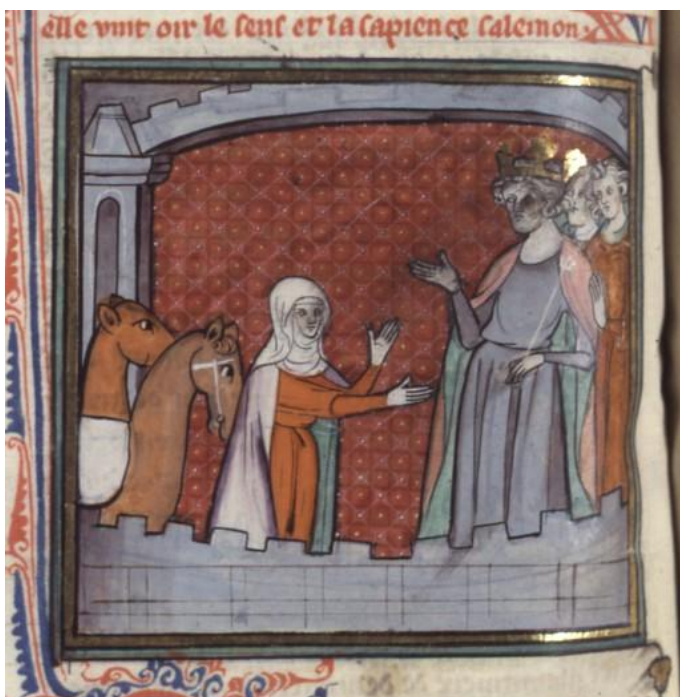 elle vint oir le sens et la sapience salemon. XVI